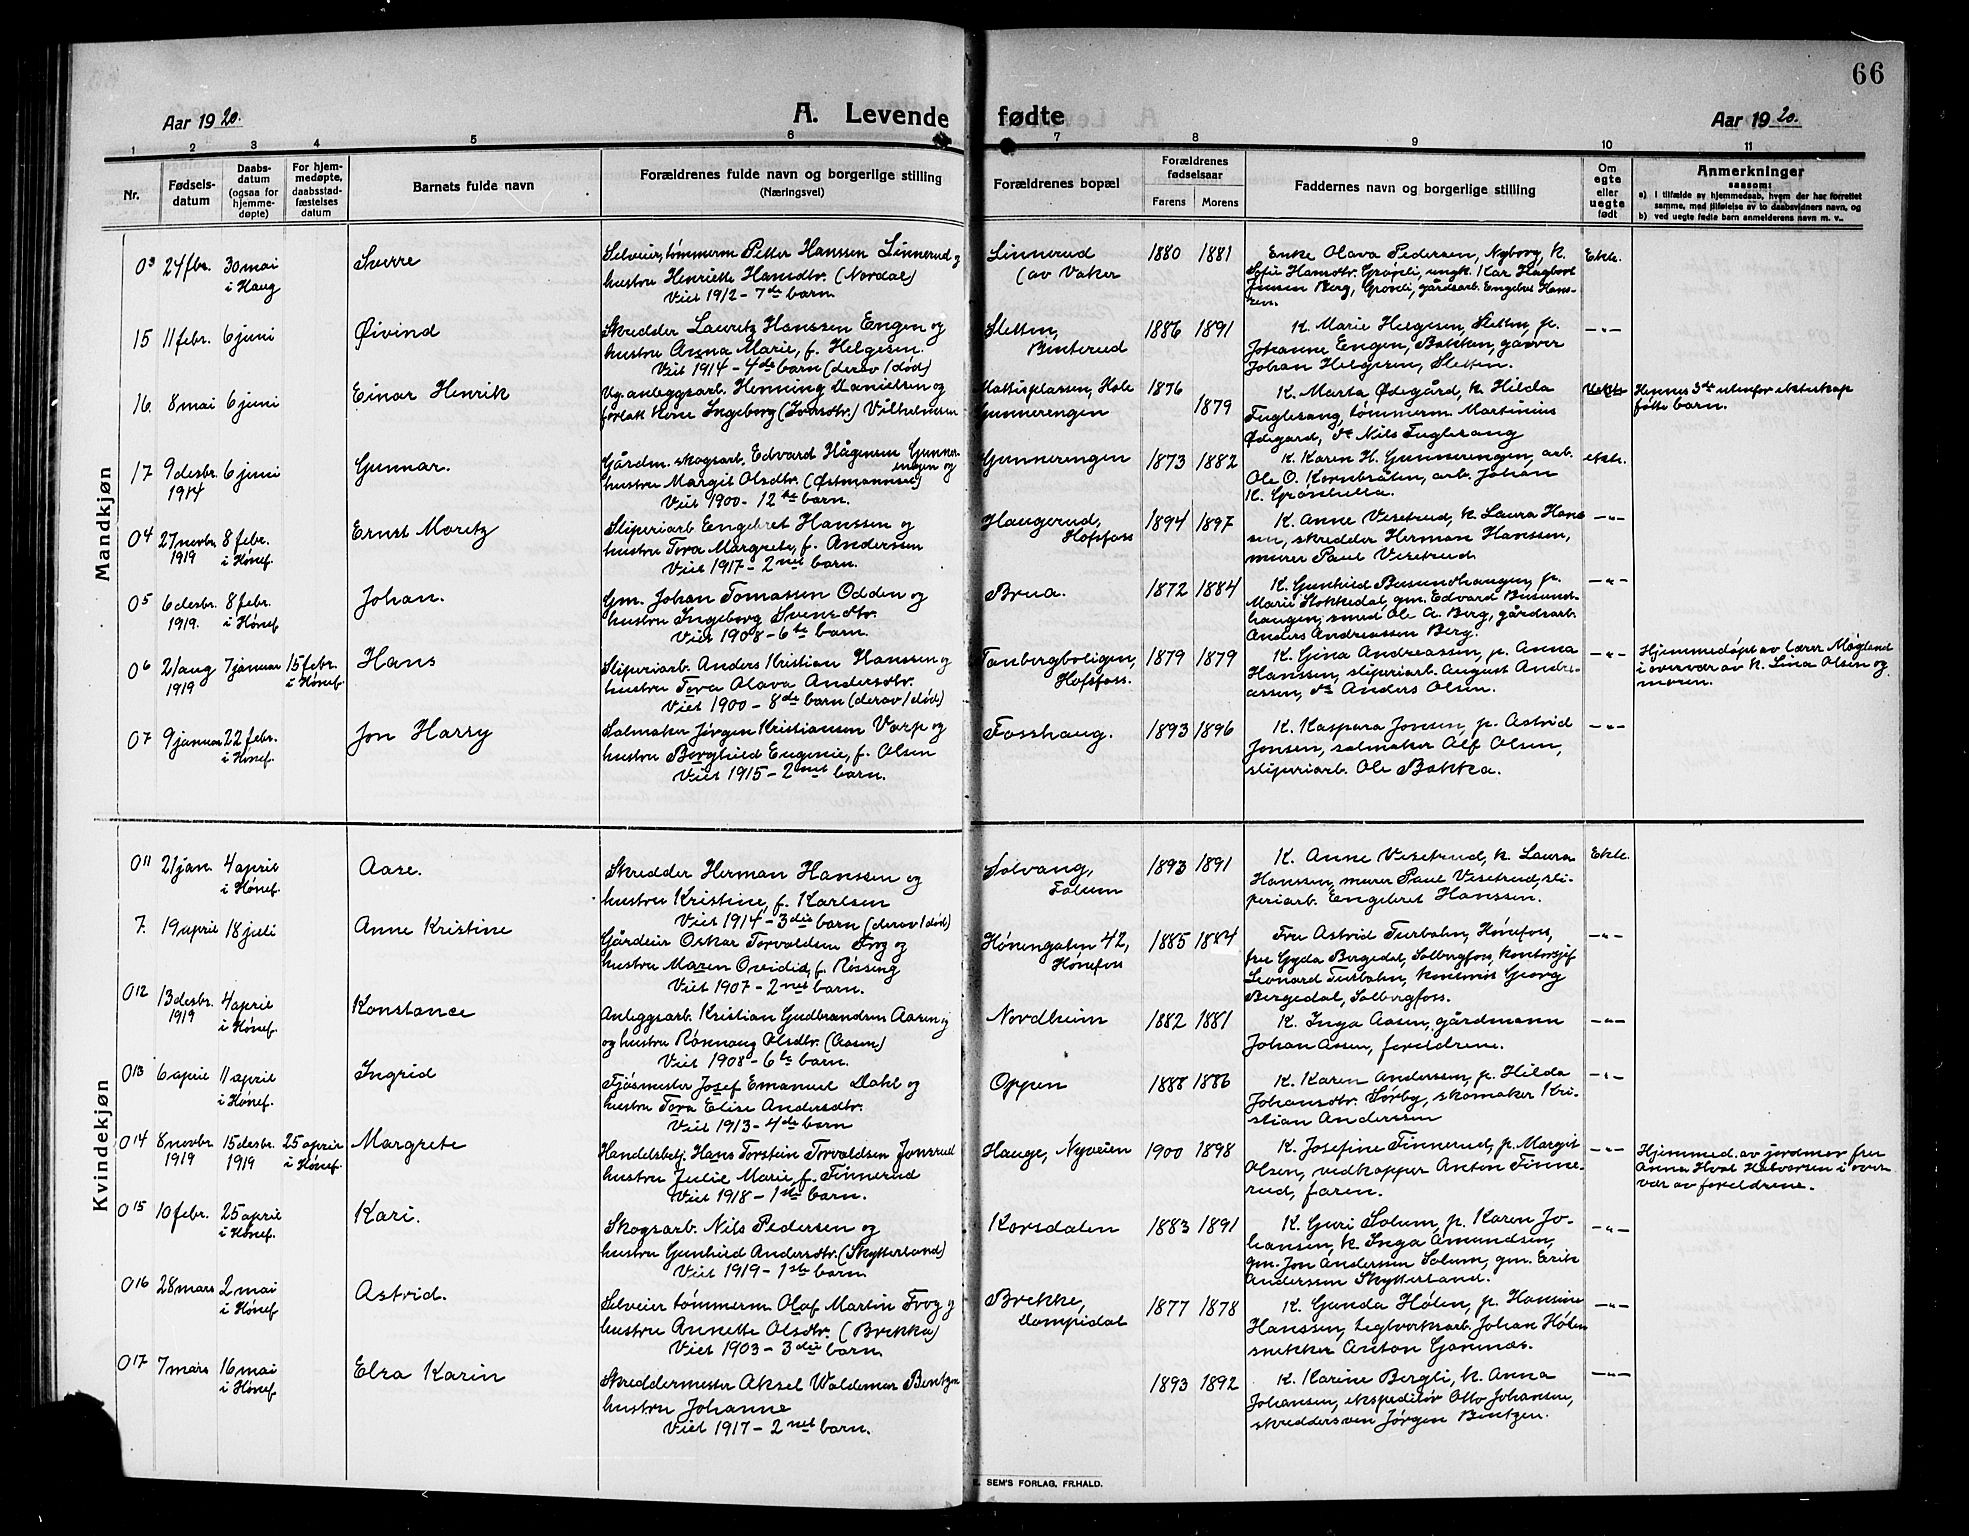 66
Aar 1920.
A. Levende fødte
Aar 1920.
1 2 3 4 5 6 7 8 9 10 11
Nr.
Fødselsdatum
Daabsdatum (ogsaa for hjemmedøpte)
For hjemmedøpte, daabsstadfæstelses datum
Barnets fulde navn
Forældrenes fulde navn og borgerlige stilling (Næringsvei)
Forældrenes bopæl
Forældrenes fødselsaar
Farens Morens
Faddernes navn og borgerlige stilling
Om egte eller uegte født
Anmerkninger
saasom:
a) I tilfælde av hjemmedaab, hvem der har forrettet samme, med tilføielse av to daabsvidners navn, og
b) ved uegte fødte barn anmelderens navn m. v..
Mandkjøn
03 24 fbr. 30 mai i Haug
Sverre
Selveier, tømmerm Petter Hansen Linnerud og
hustru Henriette Hansdtr. (Nordal)
Viet 1912 - 7de barn.
Linnerud
(av Vaker
1880 1881
Enke Olava Pedersen, Nyborg, k.
Sofie Hansdtr. Grøndli, ungk. Kar Hagbart
Jensen Berg, Grøndli, gårdsarb. Engebret Hans-
sen.
Ekte.
15 11 febr. 6 juni
Øivind
Skredder Lauritz Hanssen Engen og
hustru Anna Marie, f. Helgesen.
Viet 1914 - 4de barn (derav 1 død)
Sletten,
Binterud
1886 1891
K. Marie Helgesen, Sletten, p.
Johanne Engen, Bakken, garver
Johan Helgesen, Sletten.
—"—
16. 8 mai 6 juni
Einar Henrik
Ug. anleggsarb. Henning Danielsen og
forlatt kone Ingeborg (Ivarsdtr.) Vilhelmsen
Mattisplassen, Hole
Gunnerengen
1876 1879
K. Marta Ødegård, k. Hilda
Fuglesang, tømmerm. Martinius
Ødegard, do Nils Fuglesang
Uekte
Hennes 3dje utenfor ekteskap
fødte barn.
17 9 desbr. 1914 6 juni
Gunnar.
Gårdm. skogsarb. Edvard Hågensen Gunner-
engen og
hustru Margit Olsdtr. (Østmannset)
Viet 1900 - 12te barn.
Gunnerengen
1873 1882
K. Karen H. Gunnerengen, arb.
Ole O. Kornbråten, arb. Johan
K. Grønhella.
ekte.
04 27 novbr. 1919 8 febr. i Hønef.
Ernst Moritz
Sliperiarb Engebret Hanssen og
hustru Tora Margrete, f. Andersen
Viet 1917 - 2net barn.
Haugerud,
Hofsfoss
1894 1897
K. Anne Vesetrud, k. Laura Hans-
sen, skredder Herman Hanssen,
murer Paul Vesetrud.
—"—
05 6 desbr. 1919. 8 febr. i Hønef
Johan.
Gm. Johan Tomassen Odden og
hustru Ingeborg Svensdtr.
Viet 1908 - 6te barn.
Brua.
1872 1884
K. Gunhild Busundhaugen, p.
Marie Stokkedal, gm. Edvard Busund-
haugen, smed Ole A. Berg, gårdsarb.
Anders Andreassen Berg.
—"—
06 21 aug 1919 7 januar 15 febr. i Hønef.
Hans
Sliperiarb. Anders Kristian Hanssen og
hustru Tora Olava Andersdtr.
Viet 1900 - 8de barn (derav 1 død)
Tanbergboligen,
Hofsfoss.
1879 1879
K. Gina Andreassen, p. Anna
Hanssen, sliperiarb. August Andre-
assen, do Anders Olsen.
—"—
Hjemmedøpt av lærer Møgland
i overvær av k. Lina Olsen og
moren.
07 9 januar 22 febr. i Hønef.
Jon Harry
Salmaker Jørgen Kristiansen Varp og
hustru Borghild Eugenie, f. Olsen
Viet 1915 - 2net barn.
Fosshaug.
1893 1896
K. Kaspara Jonsen, p. Astrid
Jonsen, salmaker Alf Olsen,
sliperiarb. Ole Bakka.
—"—
Kvindekjøn
011 21 jan. 4 april i Hønef.
Aase.
Skredder Herman Hanssen og
hustru Kristine, f. Karlsen
Viet 1914 - 3die barn (derav 1 død)
Solvang,
Følum
1893 1891
K. Anne Vesetrud, k. Laura
Hanssen, murer Paul Vesetrud, sli-
periarb. Engebret Hanssen.
Ekte.
7. 19 april 18 juli
Anne Kristine
Gårdeier Oskar Torvaldsen Frog og
hustru Maren Ovidia, f. Røssing
Viet 1907 - 2net barn.
Hønengaten 42,
Hønefoss
1885 1884
Fru Astrid Furbahn, Hønefoss,
fru Gyda Bergedal, Solbergfoss, kontorsjef
Leonard Furbahn, Georg
Bergedal, Solbergfoss.
—"—
012 13 desbr. 1919 4 april i Hønef.
Konstance
Anleggsarb. Kristian Gudbrandsen Aasen og
og hustru Rønnaug Olsdtr. (Aasen)
Viet 1908 - 6te barn.
Nordheim
1882 1881
K. Inga Aasen, gårdmann
Johan Assen, foreldrene.
—"—
013 6 april 11 april i Hønef.
Ingrid
Fjøsmester Josef Emanuel Dahl og
hustru Tora Elise Andersdtr.
Viet 1913 - 4de barn
Oppen
1888 1886
K. Karen Andersen, p. Hilda
Johansdtr. Sørby, skomaker Kri-
stian Andersen
—"—
014 8 novbr. 1919 15 desbr. 1919 25 april i Hønef.
Margrete
Handelsbetj. Hans Torstein Torvaldsen Jonsrud
hustru Julie Marie, f. Finnerud
Viet 1918 - 1ste barn.
Hauge, Nyveien
1900 1898
K. Josefine Finnerud, p. Margit
Olsen, vedkapper Anton Finne-
rud, faren.
—"—
Hjemmed. av jordmor fru
Anna Hval Halvorsen i over-
vær av foreldrene.
015 10 febr. 25 april i Hønef.
Kari.
Skogsarb. Nils Pedersen og
hustru Gunhild Andersdtr. (Skytterland)
Viet 1919 - 1ste barn.
Korsdalen
1883 1891
K. Guri Solum, p. Karen Jo-
hansen, k. Inga Amundsen,
gm. Jon Andersen Solum, gm. Erik
Anderssen Skytterland.
—"—
016 28 mars 2 mai i Hønef.
Astrid.
Selveier tømmerm Olaf Martin Frog og
hustru Annette Olsdtr. (Brekka)
Viet 1903 - 3die barn.
Brekke,
Dompidal
1877 1878
K. Gunda Hølen, p. Hansine
Hanssen, teglverksarb. Johan Hølen
snekker Anton Gormnæs.
—"—
017 7 mars 16 mai i Hønef.
Elsa Karin
Skreddermester Aksel Waldemar Bentzen
hustru Johanne
Viet 1917 - 2net barn.
1893 1892
K. Karine Bergli, k. Anna
Johansen, ekspeditør Otto Johansen,
skreddersven Jørgen Bentzen.
—"—
E. SEM'S FORLAG, FR.HALD.